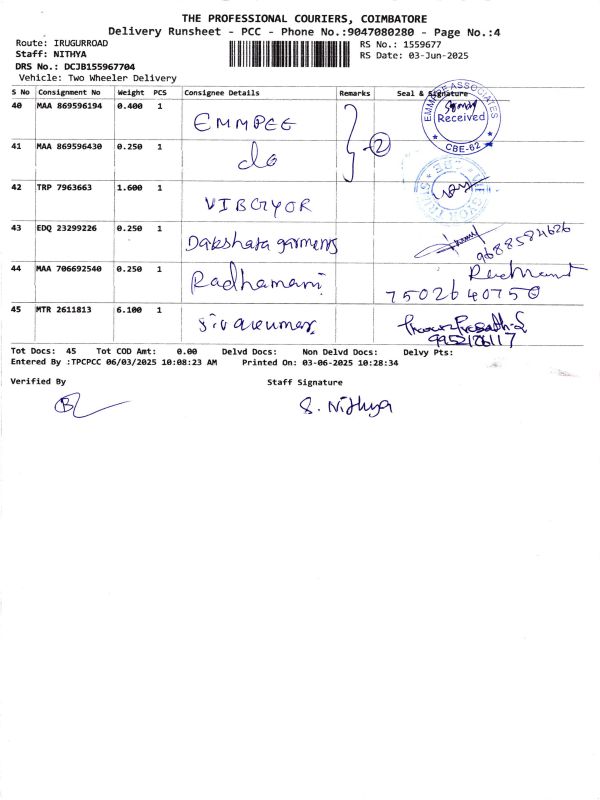 THE PROFESSIONAL COURIERS, COIMBATORE
Delivery Runsheet - PCC - Phone No.:9047080280 - Page No.:4
Route: IRUGURROAD
Staff: NITHYA
DRS No.: DCJB155967704
Vehicle: Two Wheeler Delivery
RS No.: 1559677
RS Date: 03-Jun-2025
S No Consignment No Weight PCS Consignee Details Remarks Seal & Signature
40 MAA 869596194 0.400 1 EMMPEE
EMMPEE ASSOCIATES
Received
CBE-62
41 MAA 869596430 0.250 1 do 2
42 TRP 7963663 1.600 1 VIBGYOR
43 EDQ 23299226 0.250 1 Dakshata garments 9688584626
44 MAA 706692540 0.250 1 Radhamani Radhamani
7502640750
45 MTR 2611813 6.100 1 Sivakumar
9952126117
Tot Docs: 45 Tot COD Amt: 0.00 Delvd Docs: Non Delvd Docs: Delvy Pts:
Entered By :TPCPCC 06/03/2025 10:08:23 AM Printed On: 03-06-2025 10:28:34
Verified By Staff Signature
S. Nithya